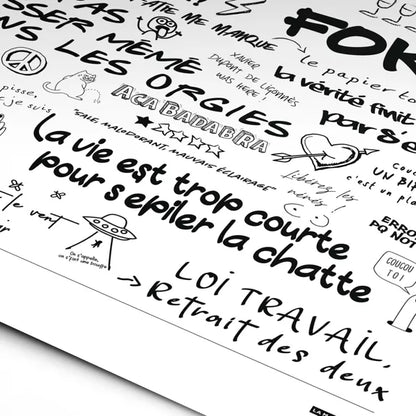 PAS
ATE ME MANQUE
SSER MÊME
NS LES ORGIES
FOR
le papier
XAVIER
DUPONT DE LIGONNÈS
WAS HERE !
la vérité finit
par s'e
pisse,
je suis
ACABADABRA
SALE, MALODORANT, MAUVAIS ÉCLAIRAGE
Libérez les
Couc
UN BI
c'est un pla
la vie est trop courte
pour s epiler la chatte
ERRO
PQ NOT
COUCOU
TOI
le vent
On s'appelle,
on s'fait une bouffe
→ LOI TRAVAIL,
Retrait des deux